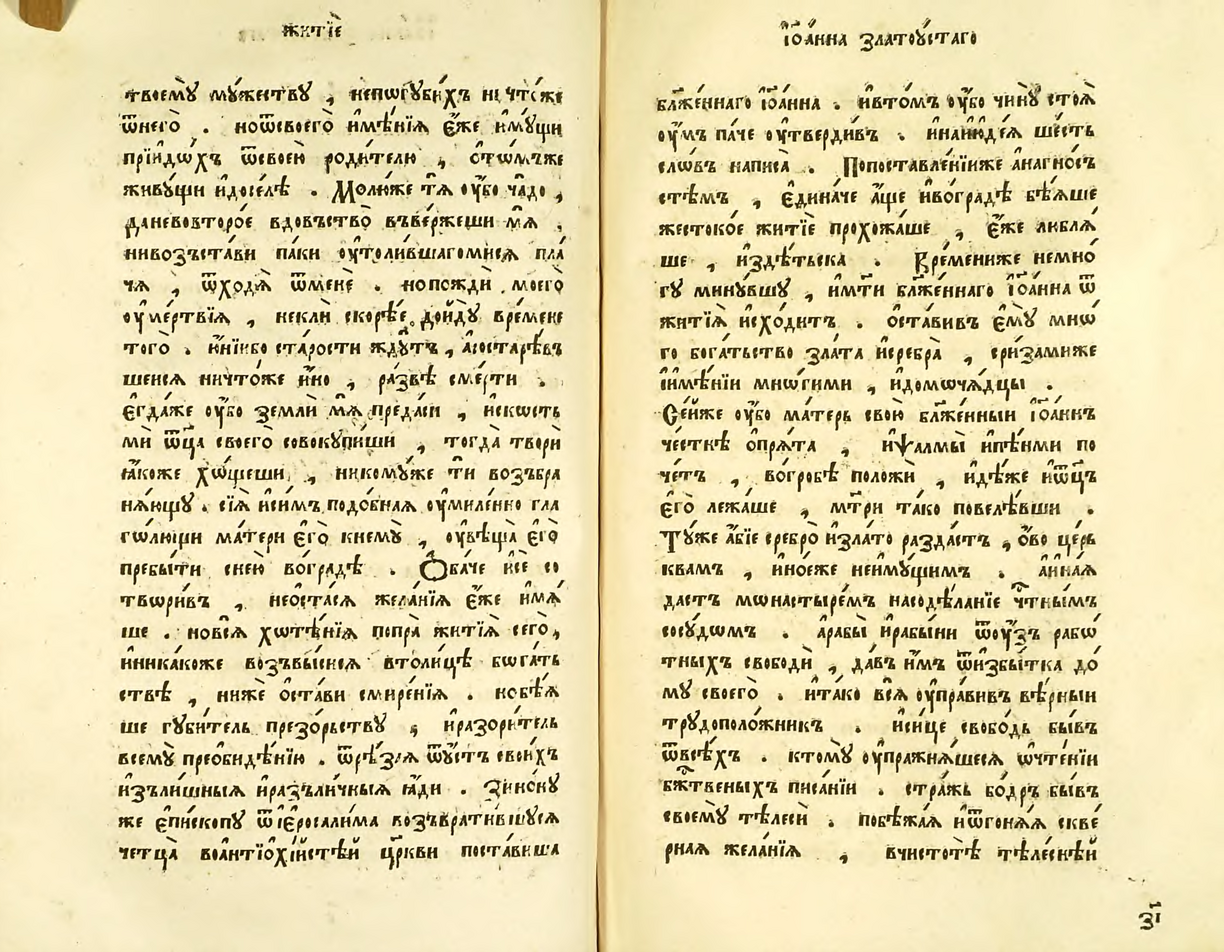 житїѐ
твоемꙋ̀ мꙋ́жествꙋ , непѡгꙋби́хъ ничто́же
ѿнего̀ . ноѿсвоего̀ и҆мѣ́нїѧ є҆́же и҆мꙋ́щи
прїидо́хъ ѿсвоею̀ родителю , ѿтѡ́мъже
живꙋ́щи и҆досе́лѣ . Молю́же тѧ̀ оу҆̀бо ча́до ,
даневовторо́е вдовъство̀ въве́ржеши мѧ̀ ,
нивозъста́ви паки оу҆толи́вшагомисѧ пла́
чѧ , ѿходѧ̀ ѿменѐ . нопождѝ моего̀
оу҆ме́ртвїѧ , некли скорѣ́е дои́дꙋ вре́мене
того̀ . и҆нїибо ста́рости ждꙋ́тъ , а҆состарѣ́въ
шеисѧ ничто́же и҆́но , ра́звѣ сме́рти .
є҆гда́же оу҆̀бо землѝ мѧ̀ предасѝ , и҆скость
мѝ ѿц҃а̀ своего̀ совокꙋпи́ши , тогда̀ творѝ
ꙗ҆́коже хо́щеши , никомꙋ́же тѝ возъбра
нѧ́ющꙋ . сїѧ̀ и҆си́мъ подо́бнаѧ оу҆миле́нно гла
го́лющи ма́тери є҆го̀ кнемꙋ̀ , оу҆вѣща̀ є҆го̀
пребы́ти снею̀ вогра́дѣ . Ѻ҆ба́че и҆сѐ со
твори́въ , неоста́сѧ жела́нїѧ є҆́же и҆мѧ́
ше . новсѧ̀ хотѣ́нїѧ попра̀ житїѧ̀ сего̀ ,
и҆никакоже возъвы́сисѧ втоли́цѣ бога́ть
ствѣ , нижѐ ѡста́ви смире́нїѧ . нобѣ́ѧ
ше гꙋби́тель презо́рьствꙋ , и҆разори́тель
всемꙋ̀ преоби́дѣнїю . ѿрѣ́зѧ ѿꙋ́стъ свои́хъ
и҆зъли́шныѧ и҆разъли́чныѧ ꙗ҆ди . Зино́нꙋ
же є҆пи́скопꙋ ѿіеросали́ма возъврати́вшꙋсѧ
четца̀ воа҆нтїохі́йстѣй цр҃кви поста́виша
і҆ѡа́нна златоꙋ́стаго
бл҃же́ннаго і҆ѡа́нна . и҆вто́мъ оу҆̀бо чинꙋ̀ стоѧ̀
оу҆́мъ па́че оу҆тверди́въ . и҆наи҆юде́ѧ ше́сть
сло́въ написа̀ . Попоставле́нїиже а҆нагно́съ
стѣмъ , є҆дина́че а҆́ще и҆вогра́дѣ бѣ́ѧше
жесто́кое житїѐ прохожа́ше , є҆́же люблѧ́
ше , и҆здѣ́тьска . Вре́мениже немно́
гꙋ минꙋ́вшꙋ , и҆м҃ти бл҃же́ннаго і҆ѡа́нна ѿ
житїѧ̀ и҆схо́дитъ . ѡста́вивъ є҆мꙋ̀ мно́
го бога́тьство зла́та и҆серебра̀ , сри́замиже
и҆и҆мѣ́нїи мно́гими , и҆домоча́дцы .
Се́йже оу҆̀бо ма́терь свою̀ бл҃же́нныи і҆ѡа́ннъ
че́стнѣ ѡпрѧ́та , и҆ѱалмы̀ и҆пѣ́нми по
че́тъ , вогро́бѣ положѝ , и҆дѣ́же и҆ѿц҃ъ
є҆го̀ лежа́ше , м҃три та́ко повелѣ́вши .
Тꙋ́же а҆́бїе сребро̀ и҆зла́то разда́стъ , о҆́во це́рь
квамъ , и҆но́еже неимꙋ́щимъ . а҆и҆на́ѧ
да́стъ монастыре́мъ насодѣ́ланїе чтны́мъ
сосꙋ́домъ . а҆рабы̀ и҆рабы́ни ѿоу҆́зъ рабо́
тныхъ свободѝ , да́въ и҆̀мъ ѿи҆збы́тка до́
мꙋ своего̀ . и҆та́ко всѧ̀ оу҆пра́вивъ вѣ́рныи
трꙋдополо́жникъ . и҆си́це свобо́дь бы́въ
ѿвсѣ́хъ . ктомꙋ̀ оу҆пражнѧ́шесѧ ѡчте́нїи
бж҃твеныхъ писа́нїи . стра́жь бо́дръ бы́въ
своемꙋ̀ тѣ́леси . побѣжа́ѧ и҆ѿгонѧ́ѧ скве́
рнаѧ жела́нїѧ , вчистотѣ̀ тѣле́снѣй
з҃і